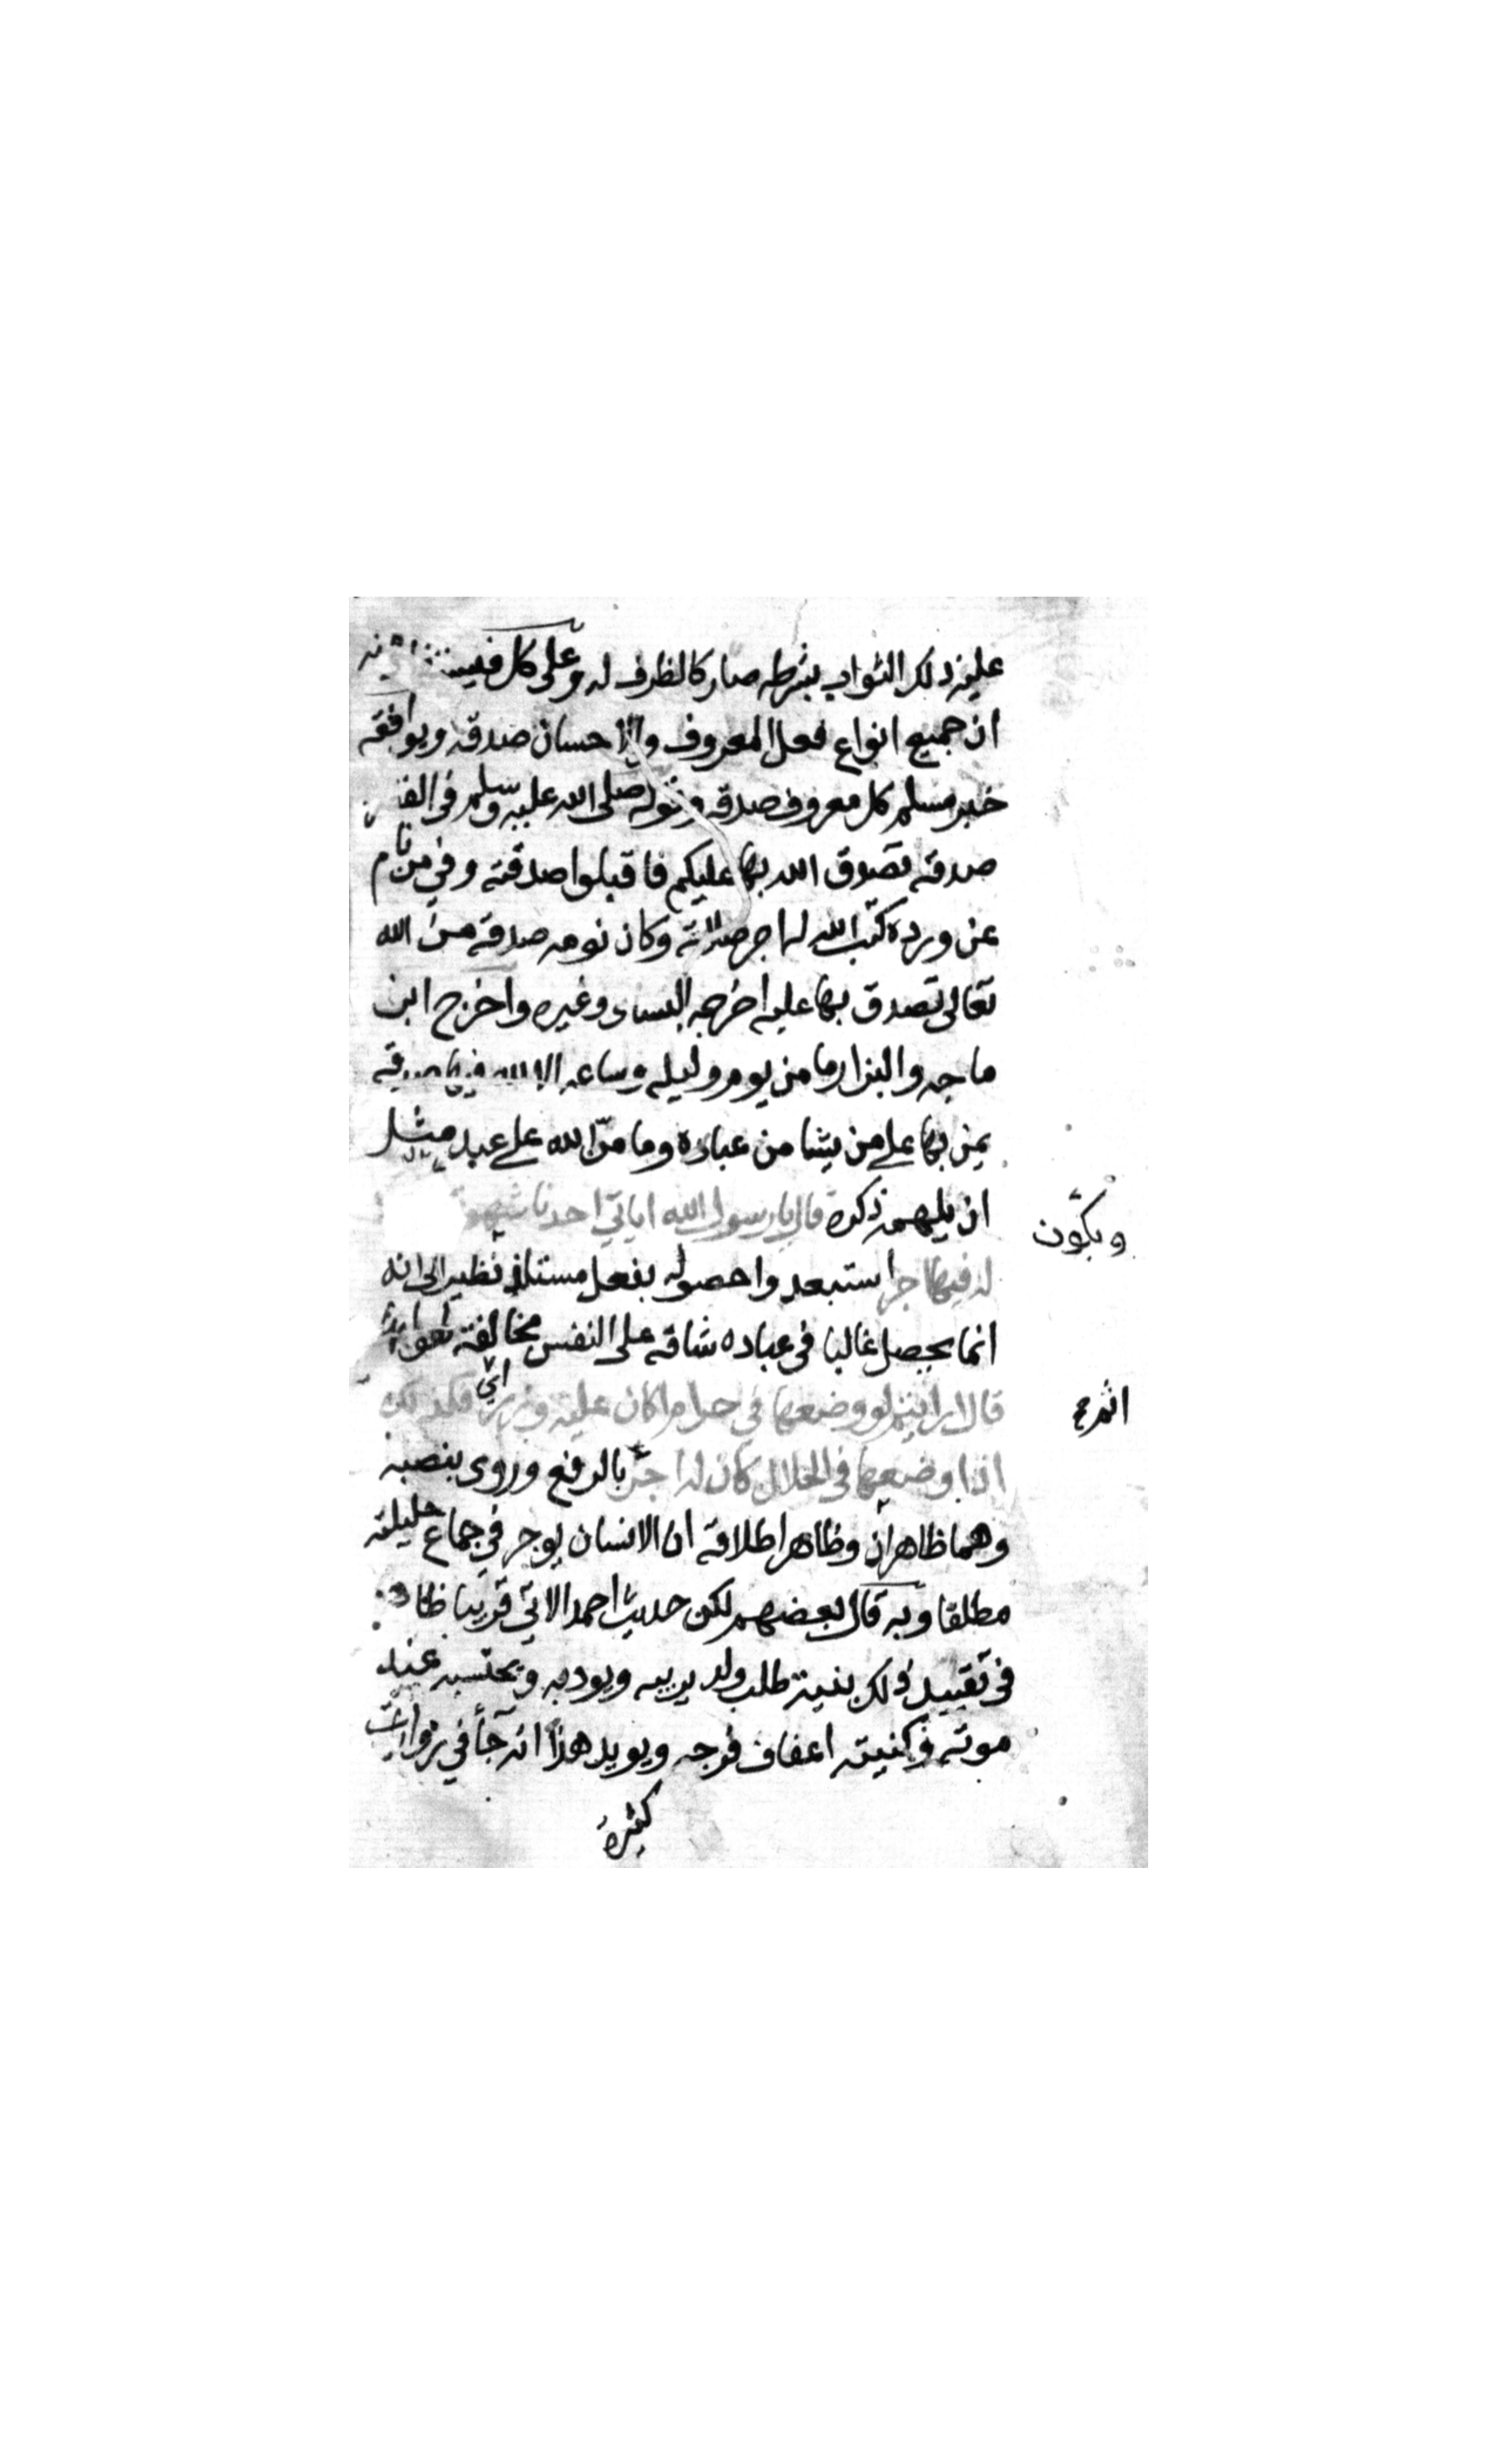 عليه ذلك الثواب بشرطه صار كالظرف له وعلى كل ففيه
ان جميع انواع فعل المعروف والاحسان صدقه ويوافقه
خبر مسلم كل معروف صدقه وقوله صلى الله عليه وسلم في
صدقه تصدق الله بها عليكم فاقبلوا صدقته وفي من نام
عن ورده كتب الله له اجر صلاته وكان نومه صدقة من الله
تعالى تصدق بها عليه اخرجه النساى وغيره واخرج ابن
ماجه والبزار ما من يوم وليله وساعه الا لله فيها صدقه
يمن بها على من يشا من عباده وما منّ الله على عبد مثل
ان يلهمه ذكره قالوا يا رسول الله اياتي احدنا شهوته
ويكون
له فيها اجر استبعدوا حصوله بفعل مستلذ نظير الى انه
انما يحصل غالبا في عباده شاقه على النفس مخالفة لهواها
قال ارايتم لو وضعها في حرام اكان عليه وزر اي فكذلك
اثم
اذا وضعها في الحلال كان له اجرٌ بالرفع وروى بنصبه
وهما ظاهران وظاهر اطلاقه ان الانسان يوجر في جماع حليلته
مطلقا وبه قال بعضهم لكن حديث احمد الاتي قريبا ظاهر
في تقييد ذلك بنية طلب ولد يربيه ويودبه ويحتسبه عند
موته وكنيته اعفاف فرجه ويويد هذا انه جأ في روايات
كثيره